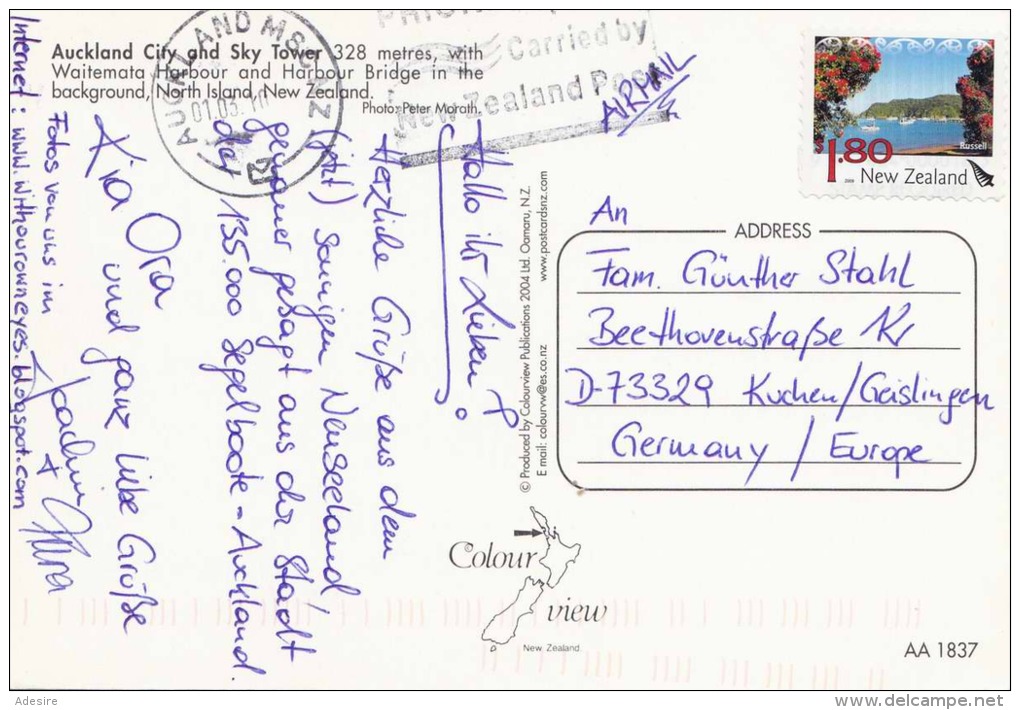 Auckland City and Sky Tower 328 metres, with
Waitemata Harbour and Harbour Bridge in the
background, North Island, New Zealand.
Photo: Peter Morath.
AUCKLAND MSC N.Z.
01.03.10
Carried by
New Zealand Post
AIRMAIL
$1.80
Russell
2008
New Zealand
Hallo ihr Lieben!
Herzliche Grüße aus dem
(jetzt) sonnigen Neuseeland
genauer gesagt aus der Stadt
der 135.000 Segelboote - Auckland.
Kia Ora
und ganz liebe Grüße
Joachim
+
Fotos von uns im
Internet: www.withourowneyes.blogspot.com
© Produced by Colourview Publications 2004 Ltd. Oamaru, N.Z.
E mail: colourvw@es.co.nz
www.postcardsnz.com
ADDRESS
An
Fam. Günther Stahl
Beethovenstraße
D-73329 Kuchen/Geislingen
Germany / Europe
Colour
view
New Zealand
AA 1837
Adesire
www.delcampe.net